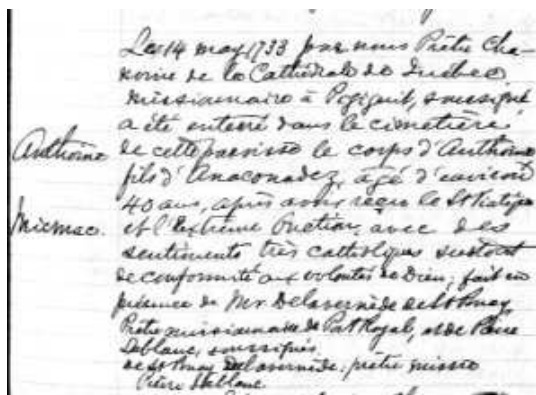 Les 14 may 1733 par nous Prêtre Cha-
noine de la Cathédrale de Québec,
missionnaire à Pigiguit, soussigné
a été enterré dans le cimetière
Anthoine de cette paroisse le corps d'Anthoine
fils d'Anaconadez, agé d'environ
40 ans, après avoir reçu le St Viatique
Micmac. et l'Extrême Onction, avec des
sentiments très catholiques surtout
de conformité aux volontés de Dieu; fait en
présence de Mr Delavernède de St Poncy,
Prêtre missionnaire de Port Royal, et de Pierre
Leblanc, soussignés.
de St Poncy Delavernède: prêtre misso
Pierre Leblanc